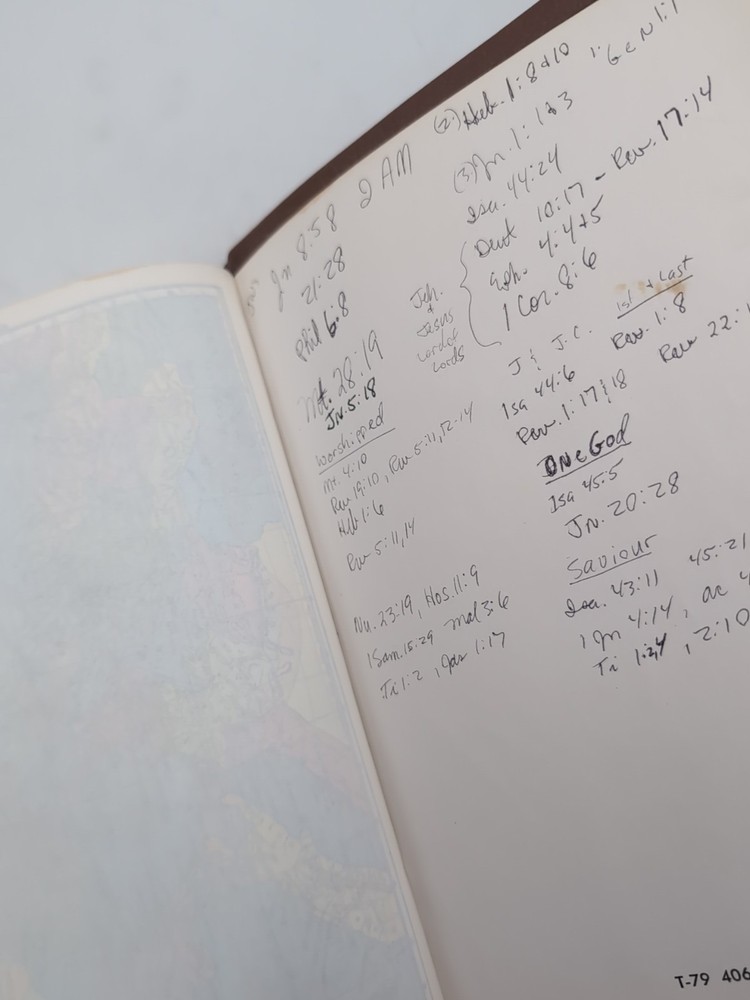 Jn 8:58 I AM
21:28
Phil 6:8
Mt. 28:19
Jn. 5:18
Worshipped
Mt. 4:10
Rev 19:10, Rev 5:11,12-14
Heb 1:6
Rev 5:11,14
Nu. 23:19, Hos. 11:9
1 Sam. 15:29 Mal 3:6
Ti 1:2, Jas 1:17
1. Gen 1:1
(2.) Heb. 1:8&10
(3) Jn. 1:1&3
Isa. 44:24
Deut 10:17 - Rev. 17:14
Eph. 4:4&5
1 Cor. 8:6
Jeh.
&
Jesus
Lord of
Lords
J & J.C. 1st & Last
Isa 44:6 Rev. 1:8
Rev. 1:17&18 Rev 22:1
One God
Isa 45:5
Jn. 20:28
Saviour
Isa. 43:11 45:21
1 Jn 4:14, ac 4
Ti 1:3,4, 2:10
T-79 406